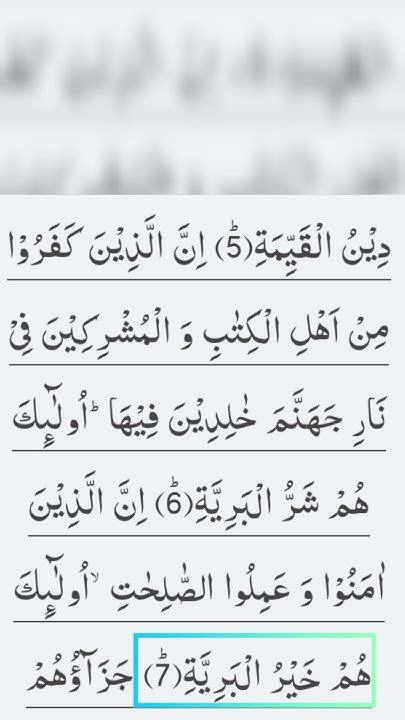 دِیْنُ الْقَیِّمَةِ(5)ؕ اِنَّ الَّذِیْنَ كَفَرُوْا
مِنْ اَهْلِ الْكِتٰبِ وَ الْمُشْرِكِیْنَ فِیْ
نَارِ جَهَنَّمَ خٰلِدِیْنَ فِیْهَاؕ اُولٰٓىٕكَ
هُمْ شَرُّ الْبَرِیَّةِ(6)ؕ اِنَّ الَّذِیْنَ
اٰمَنُوْا وَ عَمِلُوا الصّٰلِحٰتِۙ اُولٰٓىٕكَ
هُمْ خَیْرُ الْبَرِیَّةِ(7)ؕ جَزَآؤُهُمْ